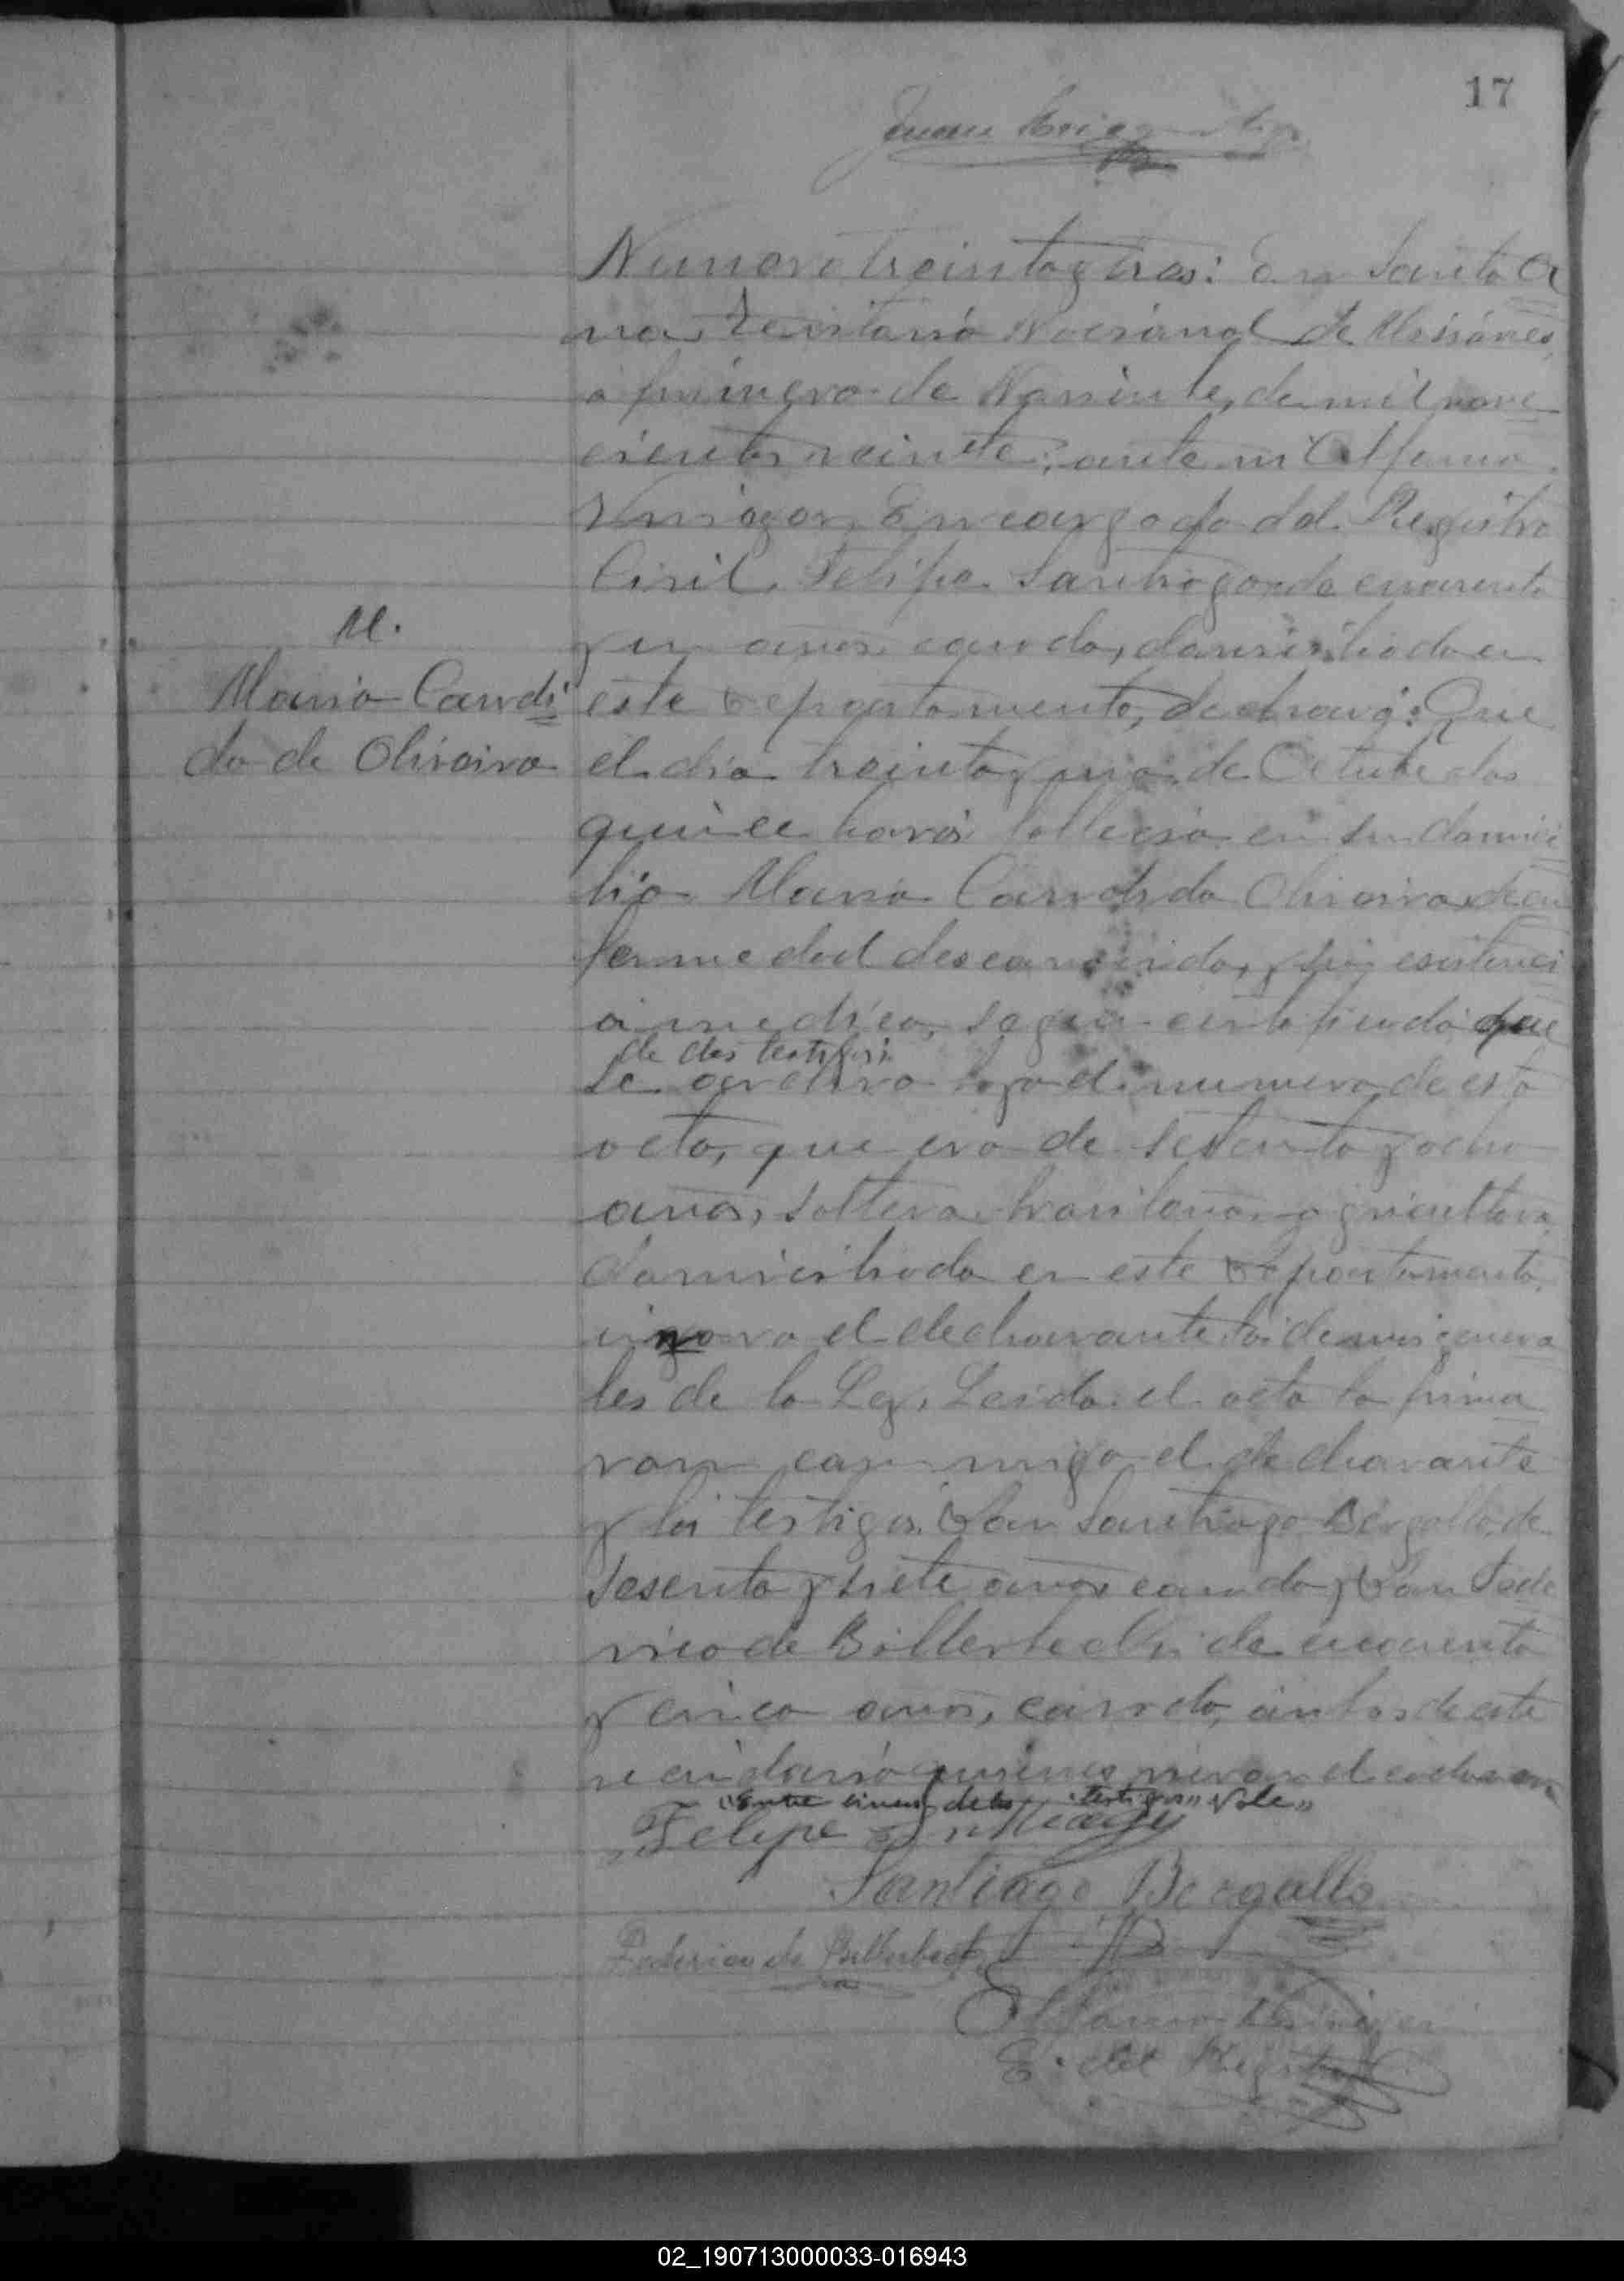 17
Juan
Numero treinta y tres: En Santa A
na Territorio Nacional de Misiones,
a primero de Noviembre, de mil nove
cientos veinte: ante mi
Encargado del Registro
Civil, Felipe Santiago, de cuarenta
y un años, casado, domiciliado en
este Departamento, declaro: Que
el dia treinta y uno de Octubre a las
quince horas fallecio en su domici
lio Maria Candida Oliveira, de en
fermedad desconocida, y sin esistenci
a medica, segun certificado que
de dos testigos
se archiva bajo el numero de esta
acta, que era de setenta y ocho
años, soltera, brasilera, agricultora,
domiciliada en este Departamento,
ignora el declarante las demas genera
les de la Ley. Leida el acta la firma
ron conmigo el declarante
y los testigos Don Santiago Bergallo, de
sesenta y siete años casado y Don Fede
rico de Billerbeck de cuarenta
y cinco años, casado, ambos de este
vecindario quienes vieron el cadaver.
"Entre lineas, de dos testigos" Vale"
M.
Maria Candi
da de Oliveira
Felipe
Santiago Bergallo
Federico de Billerbeck
E. del Registro
02_190713000033-016943